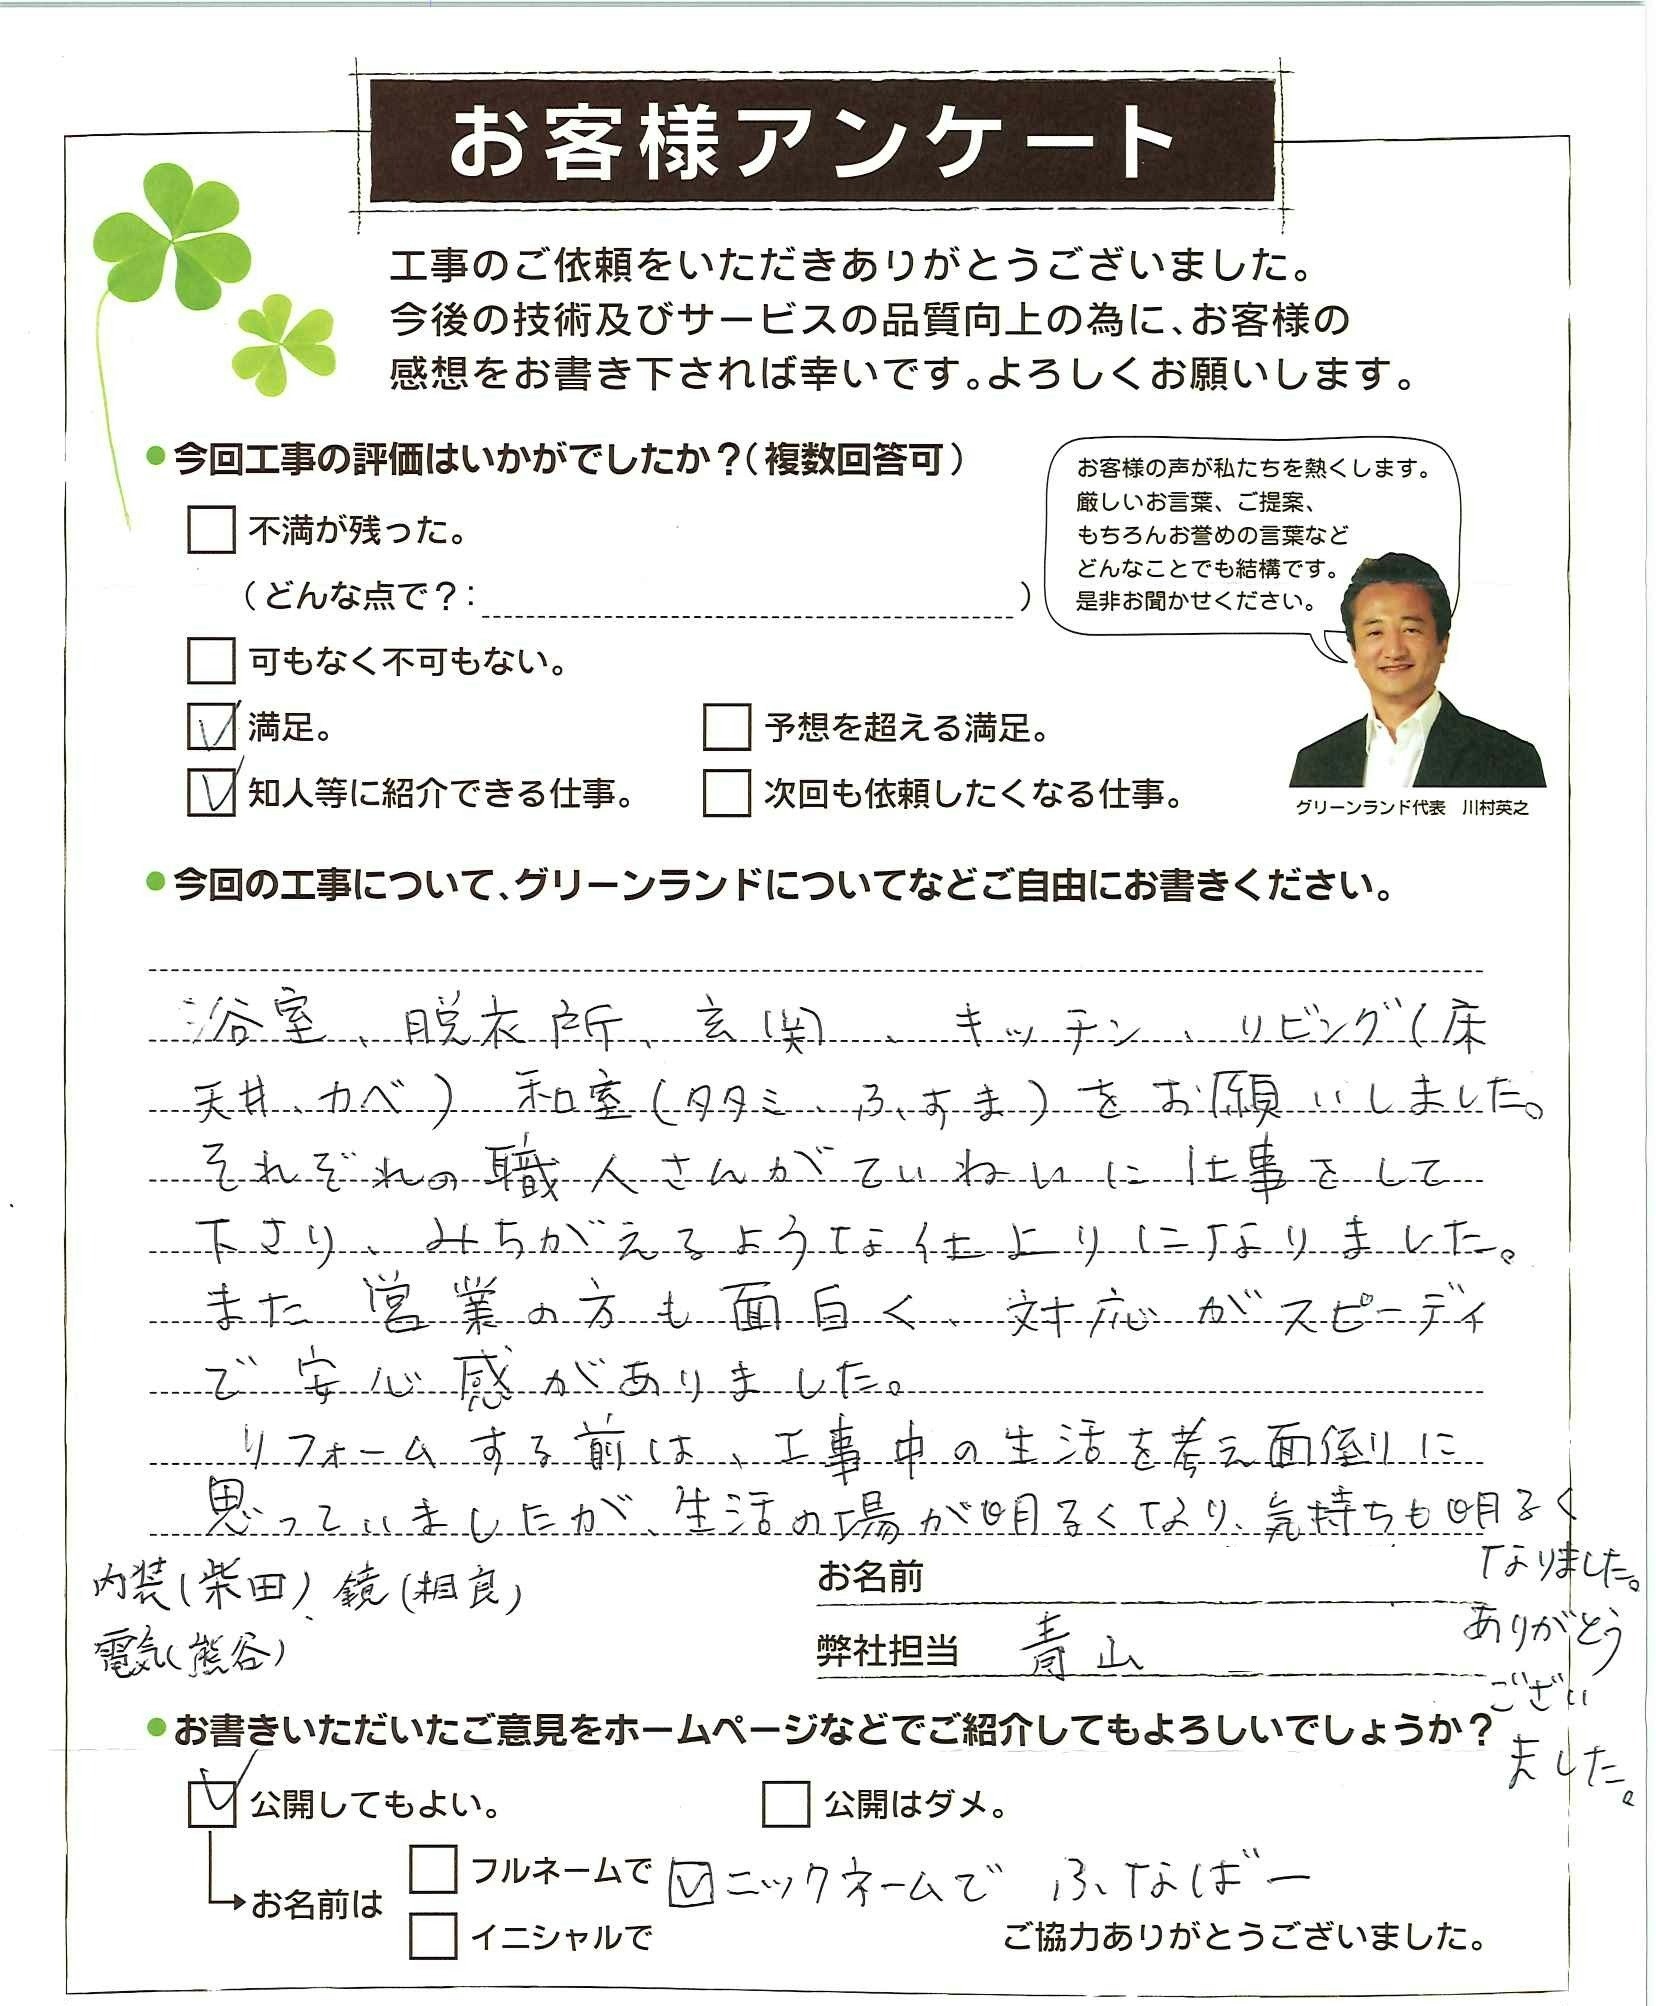 お客様アンケート
工事のご依頼をいただきありがとうございました。
今後の技術及びサービスの品質向上の為に、お客様の
感想をお書き下されば幸いです。よろしくお願いします。
●今回工事の評価はいかがでしたか？（複数回答可）
お客様の声が私たちを熱くします。
厳しいお言葉、ご提案、
もちろんお誉めの言葉など
どんなことでも結構です。
是非お聞かせください。
グリーンランド代表　川村英之
不満が残った。
（どんな点で？：　）
可もなく不可もない。
満足。
予想を超える満足。
知人等に紹介できる仕事。
次回も依頼したくなる仕事。
●今回の工事について、グリーンランドについてなどご自由にお書きください。
浴室、脱衣所、玄関、キッチン、リビング（床
天井、カベ）和室（タタミ、ふすま）をお願いしました。
それぞれの職人さんがていねいに仕事をして
下さり、みちがえるような仕上りになりました。
また営業の方も面白く、対応がスピーディ
で安心感がありました。
リフォームする前は、工事中の生活を考え面倒りに
思っていましたが、生活の場が明るくなり、気持ちも明るく
なりました。
ありがとう
ござい
ました。
内装（柴田）、鏡（相良）
電気（熊谷）
お名前
弊社担当　青山
●お書きいただいたご意見をホームページなどでご紹介してもよろしいでしょうか？
公開してもよい。
公開はダメ。
お名前は
フルネームで
ニックネームで　ふなばー
イニシャルで
ご協力ありがとうございました。